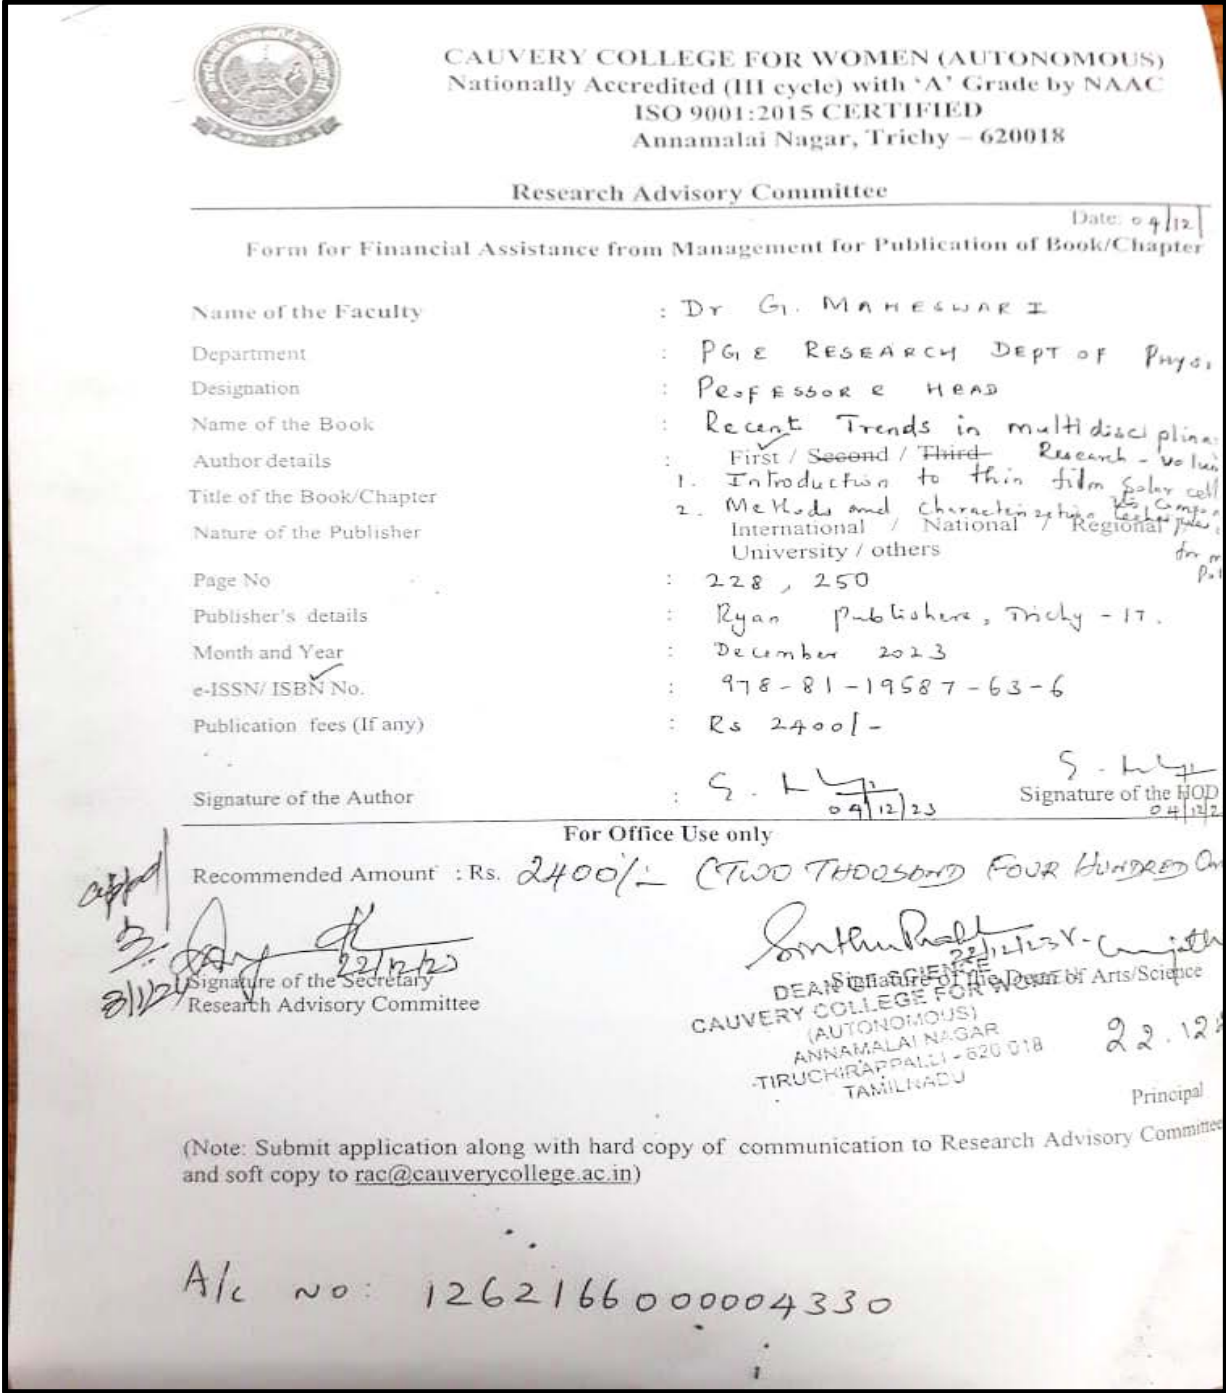 CAUVERY COLLEGE FOR WOMEN (AUTONOMOUS)
Nationally Accredited (III cycle) with 'A' Grade by NAAC
ISO 9001:2015 CERTIFIED
Annamalai Nagar, Trichy – 620018
Research Advisory Committee
Date: 04/12/
Form for Financial Assistance from Management for Publication of Book/Chapter
Name of the Faculty : Dr G. MAHESWARI
Department : PG & RESEARCH DEPT OF Phys
Designation : PROFESSOR & HEAD
Name of the Book : Recent Trends in multidisciplina
Author details : First / Second / Third Research - volum
Title of the Book/Chapter 1. Introduction to thin film Solar cell
2. Methods and Characterization techniques
Nature of the Publisher International / National / Regional
University / others
Page No : 228, 250
Publisher's details : Ryan publishers, Trichy - 17.
Month and Year : December 2023
e-ISSN/ ISBN No. : 978-81-19587-63-6
Publication fees (If any) : Rs 2400/-
Signature of the Author : 04/12/23
Signature of the HOD
04/12/2
For Office Use only
Recommended Amount : Rs. 2400/- (TWO THOUSAND FOUR HUNDRED On
22/12/23 22/12/23
Signature of the Secretary Signature of the Dean of Arts/Science
Research Advisory Committee
DEAN OF SCIENCE
CAUVERY COLLEGE FOR WOMEN
(AUTONOMOUS)
ANNAMALAI NAGAR
TIRUCHIRAPPALLI - 620 018
TAMILNADU
22.12
Principal
(Note: Submit application along with hard copy of communication to Research Advisory Committee
and soft copy to rac@cauverycollege.ac.in)
A/c no: 1262166000004330